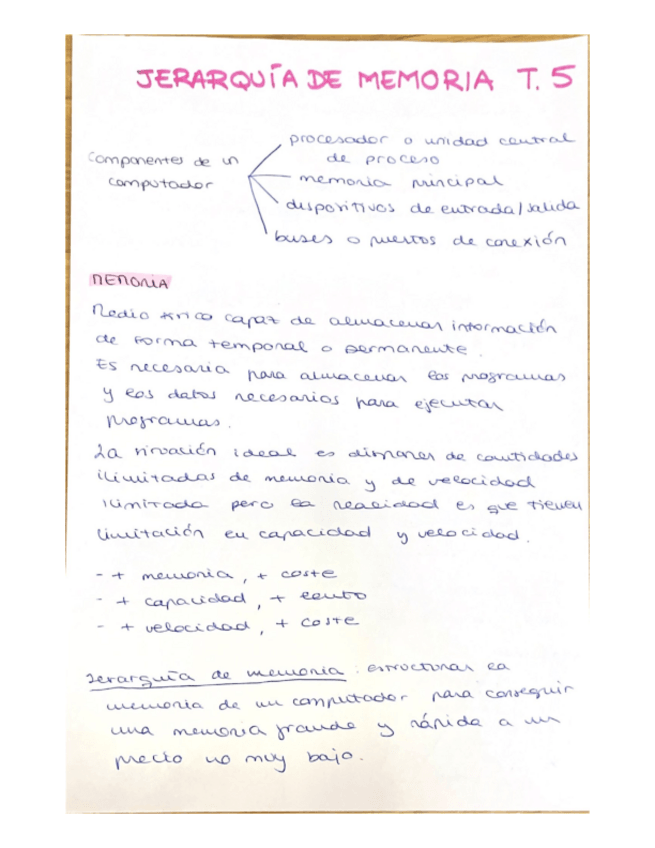 JERARQUÍA DE MEMORIA T. 5
Componentes de un computador
procesador o unidad central
de proceso
memoria principal
dispositivos de entrada/salida
buses o puertos de conexión
MEMORIA
Medio físico capaz de almacenar información
de forma temporal o permanente.
Es necesaria para almacenar los programas
y los datos necesarios para ejecutar
programas.
La situación ideal es disponer de cantidades
ilimitadas de memoria y de velocidad
ilimitada pero la realidad es que tienen
limitación en capacidad y velocidad.
- + memoria, + coste
- + capacidad, + lento
- + velocidad, + coste
Jerarquía de memoria: estructurar la
memoria de un computador para conseguir
una memoria grande y rápida a un
precio no muy bajo.